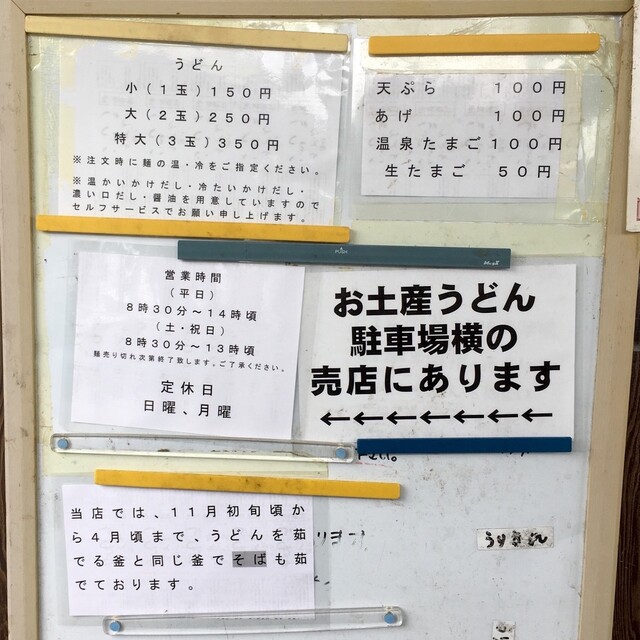 うどん
小(1玉)150円
大(2玉)250円
特大(3玉)350円
※注文時に麺の温・冷をご指定ください。
※温かいかけだし・冷たいかけだし・
濃い口だし・醤油を用意していますので
セルフサービスでお願い申し上げます。
天ぷら 100円
あげ 100円
温泉たまご100円
生たまご 50円
PUSH
営業時間
(平日)
8時30分~14時頃
(土・祝日)
8時30分~13時頃
麺売り切れ次第終了致します。ご了承ください。
定休日
日曜、月曜
お土産うどん
駐車場横の
売店にあります
←←←←←←←
当店では、11月初旬頃か
ら4月頃まで、うどんを茹
でる釜と同じ釜でそばも茹
でております。